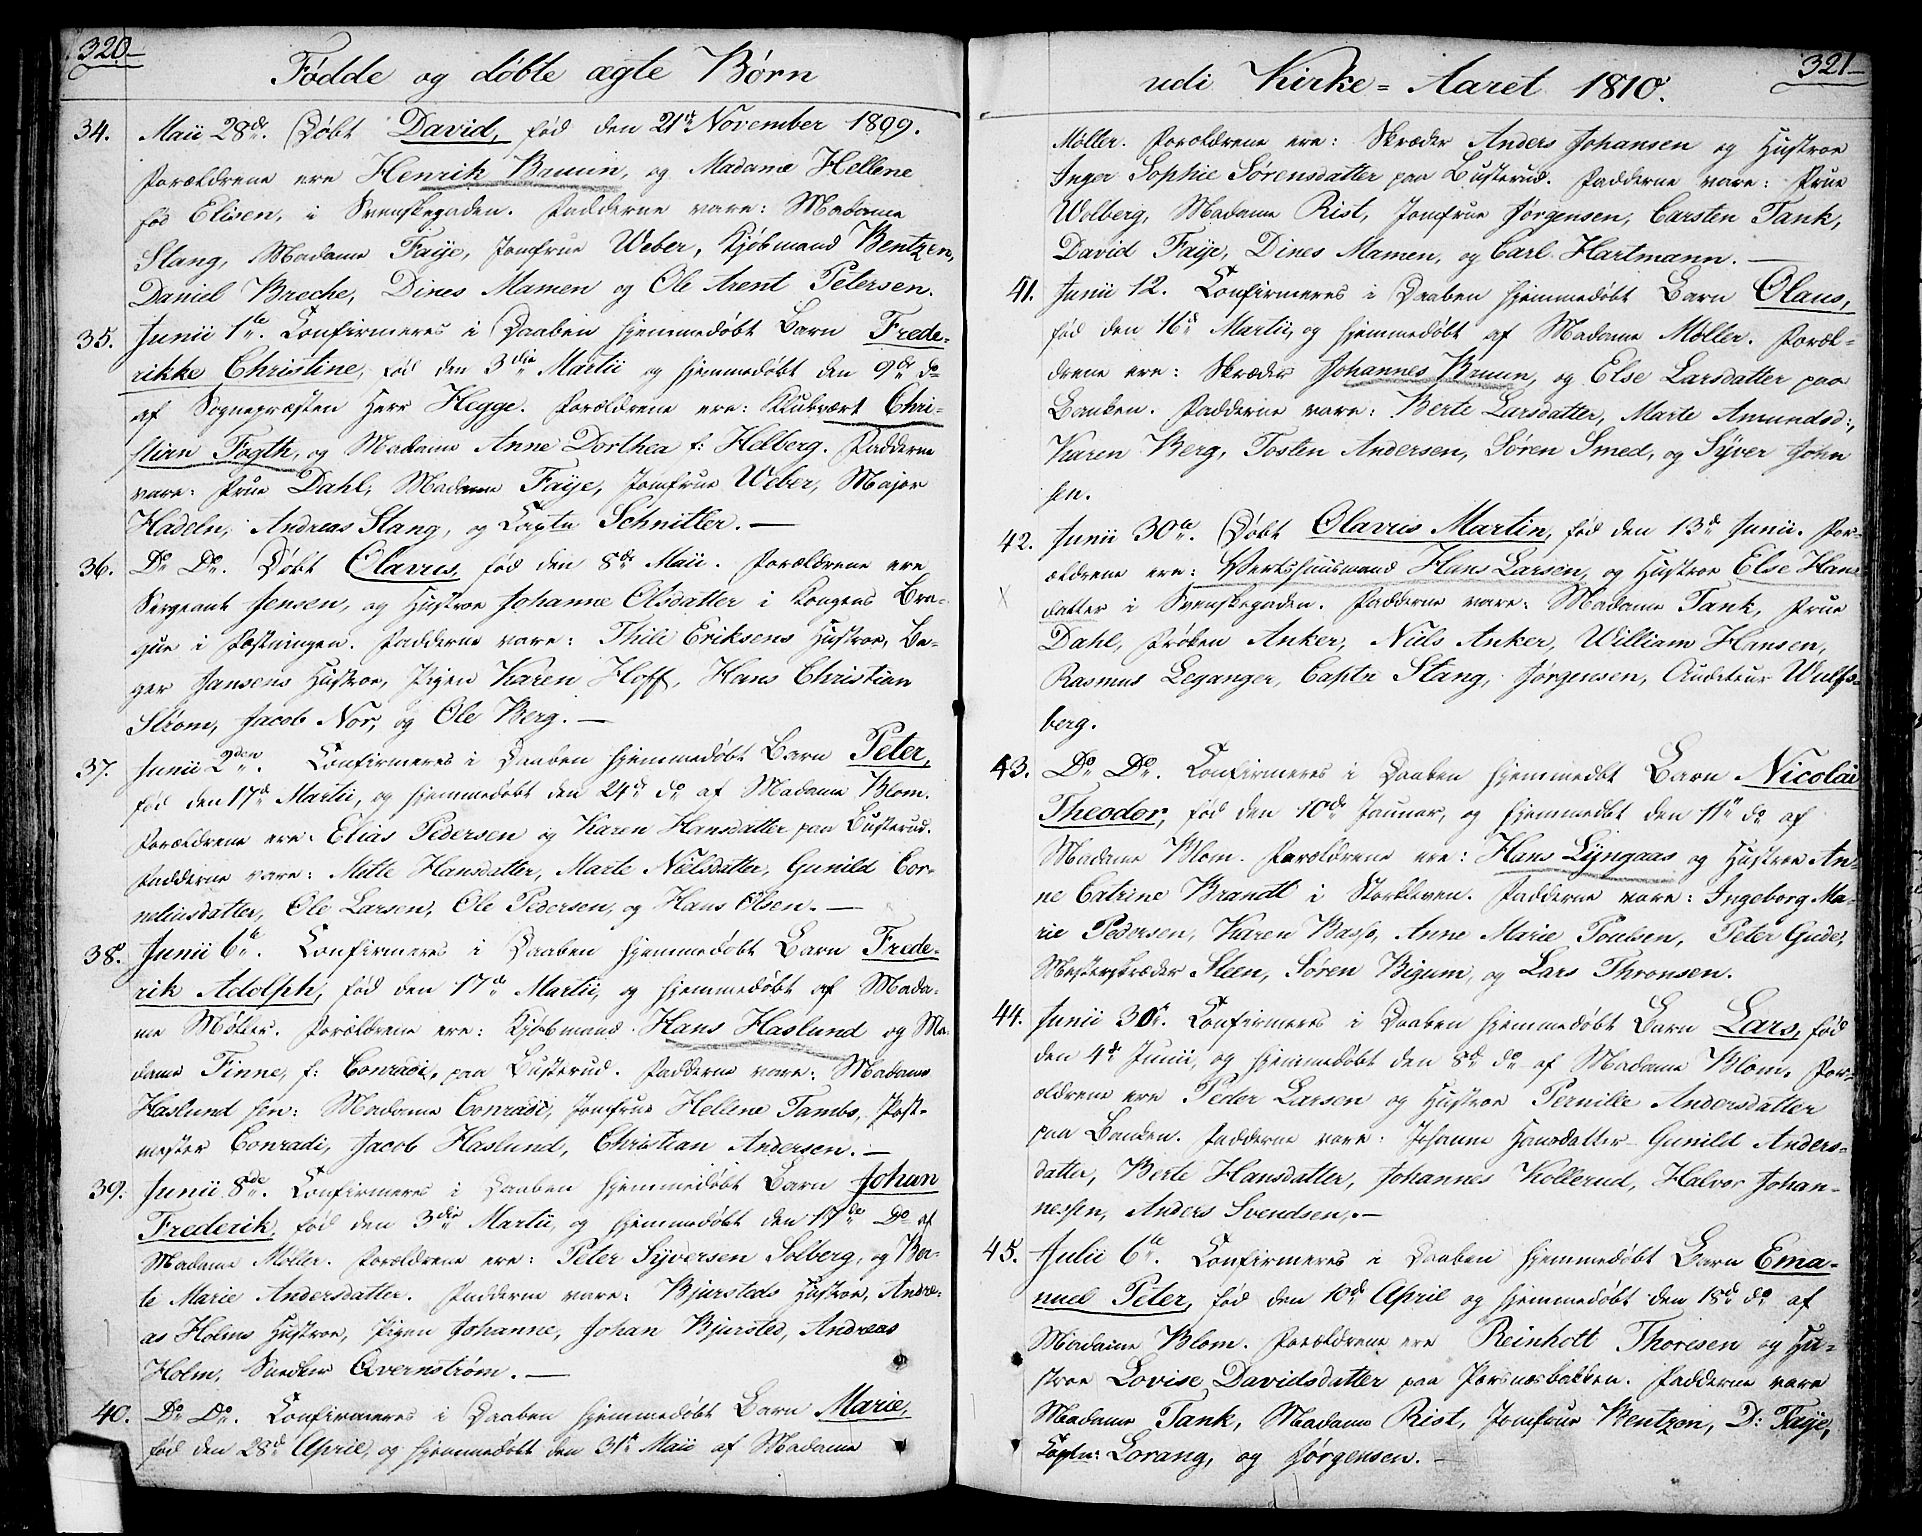 320
Fødde og døbte ægte Børn
34. Maii 28de. Døbt David, fød den 21de November 1899.
Forældrene ere Henrik Bruun, og Madame Hellene
fød Elisen, i Svenskegaden. Fadderne vare: Madame
Stang, Madame Faÿe, Jomfrue Weber, Kjøbmand Bentzen,
Daniel Breche, Dines Mamen og Ole Arent Petersen.
35. Junii 1te. Confirmeres i Daaben hjemmedøbt Barn Frede-
rikke Christine, fød den 3die Martii og hjemmedøbt den 9de do
af Sognepræsten Herr Hegge. Forældrene ere: Chri-
stian Fogth, og Madame Anne Dorthea f: Helberg. Fadderne
vare: Frue Dahl, Madame Faÿe, Jomfrue Weber, Major
Hadeln, Andreas Stang, og Captn Schnitler. —
36. Do Do. Døbt Olavus, fød den 8de Maii. Forældrene ere
Sergeant Jensen, og Hustroe Johanne Olsdatter i Kongens Bra-
gue i Fæstningen. Fadderne vare: Thiii Eriksens Hustroe, Be-
ger Jansens Hustroe, Pigen Karen Hoff, Hans Christian
Strøm, Jacob Nor, og Ole Berg. —
37. Junii 2den. Confirmeres i Daaben hjemmedøbt Barn Peter,
fød den 17de Martii, og hjemmedøbt den 24de do af Madame Blom.
Forældrene ere: Elias Pedersen og Karen Hansdatter paa Busterud.
Fadderne vare: Mette Hansdatter, Marte Nielsdatter, Gunild Cor-
neliusdatter, Ole Larsen, Ole Pedersen, og Hans Olsen. —
38. Junii 6te. Confirmeres i Daaben hjemmedøbt Barn Frede-
rik Adolph, fød den 17de Martii, og hjemmedøbt af Mada-
me Møller. Forældrene ere: Kjøbmand Hans Haslund og Ma-
dame Finne, f: Conradi, paa Busterud. Fadderne vare: Madame
Haslund sen: Madame Conradi, Jomfrue Hellene Tambs, Post-
mester Conradi, Jacob Haslund, Christian Andersen. —
39. Junii 8de. Confirmeres i Daaben hjemmedøbt Barn Johan
Frederik, fød den 3die Martii, og hjemmedøbt den 17de Do af
Madame Møller. Forældrene ere: Peter Syversen Solberg, og Ber-
te Marie Andersdatter. Fadderne vare: Bjursteds Hustroe, Andre-
as Holms Hustroe, Pigen Johanne, Johan Bjursted, Andreas
Holm, Snedker Qvernstrøm. —
40. Do Do. Confirmeres i Daaben hjemmedøbt Barn Marie,
fød den 28de April, og hjemmedøbt den 31te Maii af Madame
321
udi Kirke=Aaret 1810.
Møller. Forældrene ere: Skræder Anders Johansen og Hustroe
Inger Sophie Sørensdatter paa Busterud. Fadderne vare: Frue
Wolberg, Madame Rist, Jomfrue Jørgensen, Carsten Tank,
David Faÿe, Dines Mamen, og Carl Hartmann. —
41. Junii 12. Confirmeres i Daaben hjemmedøbt Barn Olaus,
fød den 16de Martii, og hjemmedøbt af Madame Møller. Foræl-
drene ere: Skræder Johannes Bruun, og Else Larsdatter paa
Banken. Fadderne vare: Berte Larsdatter, Marte Amundsd:,
Karen Berg, Tosten Andersen, Søren Smed, og Syver John
sen.
42. Junii 30te. Døbt Olavus Martin, fød den 13de Junii. For-
ældrene ere: Vertshuusmand Hans Larsen, og Hustroe Else Hans
datter i Svenskegaden. Fadderne vare: Madame Tank, Frue
Dahl, Frøken Anker, Niels Anker, William Hansen,
Rasmus Leganger, Captn Stang, Jørgensen, Auditeur Wulfs-
berg.
43. Do Do. Confirmeres i Daaben hjemmedøbt Barn Nicolai
Theodor, fød den 10de Januar, og hjemmedøbt den 11te do af
Madame Blom. Forældrene ere: Hans Lyngaas og Hustroe An-
ne Catrine Brandt i Storkleven. Fadderne vare: Ingeborg Ma-
rie Pedersen, Karen Basse, Anne Marie Poulsen, Peter Gude,
Mesterskræder Steen, Søren Bigum, og Lars Thronsen.
44. Junii 30te. Confirmeres i Daaben hjemmedøbt Barn Lars, fød
den 4de Junii, og hjemmedøbt den 8de do af Madame Blom. For-
ældrene ere Peder Larsen og Hustroe Pernille Andersdatter
paa Banken. Fadderne vare: Johanne Hansdatter Gunild Anders-
datter, Berte Hansdatter, Johannes Kollerud, Halvor Johan-
nessen, Anders Svendsen. —
45. Julii 6te. Confirmeres i Daaben hjemmedøbt Barn Ema-
nuel Peter, fød den 10de April og hjemmedøbt den 18de do af
Madame Blom. Forældrene ere Reinholt Thoresen og Hu-
stroe Lovise Davidsdatter paa Forsnæsbakken. Fadderne vare
Madame Tank, Madame Rist, Jomfrue Bentzen, D: Faÿe,
Captn: Lorang, og Jørgensen. —